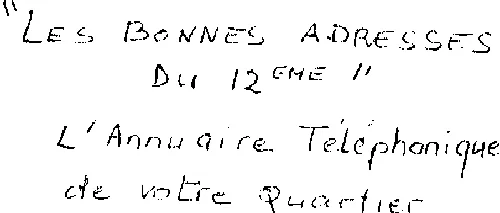 "LES BONNES ADRESSES
DU 12EME"
L'Annuaire Téléphonique
de votre Quartier